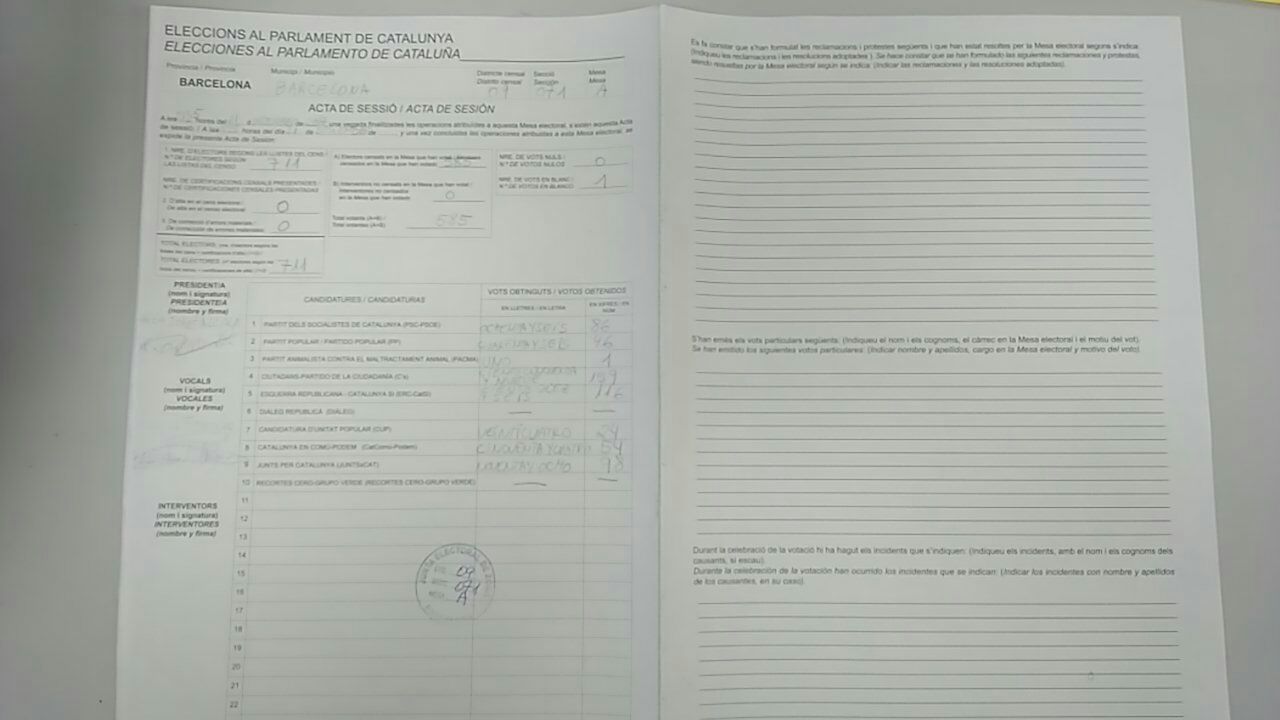 ELECCIONS AL PARLAMENT DE CATALUNYA
ELECCIONES AL PARLAMENTO DE CATALUÑA
Província / Provincia
Municipi / Municipio
Districte censal
Distrito censal
Secció
Sección
Mesa
Mesa
BARCELONA
BARCELONA
09
071
A
ACTA DE SESSIÓ / ACTA DE SESIÓN
A les hores del d de una vegada finalitzades les operacions atribuïdes a aquesta Mesa electoral, s'estén aquesta Acta
de sessió / A las horas del día de de y una vez concluidas las operaciones atribuidas a esta Mesa electoral, se
expide la presente Acta de Sesión:
1. NRE. D'ELECTORS SEGONS LES LLISTES DEL CENS /
N.º DE ELECTORES SEGÚN
LAS LISTAS DEL CENSO
711
NRE. DE CERTIFICACIONS CENSALS PRESENTADES /
N.º DE CERTIFICACIONES CENSALES PRESENTADAS
2. D'alta en el cens electoral /
De alta en el censo electoral
0
3. De correcció d'errors materials /
De corrección de errores materiales
0
TOTAL ELECTORS
TOTAL ELECTORES
711
A) Electors censats en la Mesa que han votat /
censados en la Mesa que han votado
585
B) Interventors no censats en la Mesa que han votat /
Interventores no censados
en la Mesa que han votado
0
Total votants (A+B) /
Total votantes (A+B)
585
NRE. DE VOTS NULS /
N.º DE VOTOS NULOS
0
NRE. DE VOTS EN BLANC /
N.º DE VOTOS EN BLANCO
1
PRESIDENT/A
(nom i signatura)
PRESIDENTE/A
(nombre y firma)
VOCALS
(nom i signatura)
VOCALES
(nombre y firma)
INTERVENTORS
(nom i signatura)
INTERVENTORES
(nombre y firma)
CANDIDATURES / CANDIDATURAS
VOTS OBTINGUTS / VOTOS OBTENIDOS
EN LLETRES / EN LETRA
EN XIFRES / EN NÚM
1 PARTIT DELS SOCIALISTES DE CATALUNYA (PSC-PSOE) OCHENTAYSEIS 86
2 PARTIT POPULAR / PARTIDO POPULAR (PP) 46
3 PARTIT ANIMALISTA CONTRA EL MALTRACTAMENT ANIMAL (PACMA) UNO 1
4 CIUTADANS-PARTIDO DE LA CIUDADANÍA (C's) 159
5 ESQUERRA REPUBLICANA - CATALUNYA SÍ (ERC-CatSí) Y SEIS 116
6 DIÀLEG REPÚBLICA (DIÀLEG) — —
7 CANDIDATURA D'UNITAT POPULAR (CUP) VEINTICUATRO 24
8 CATALUNYA EN COMÚ-PODEM (CatComú-Podem) 54
9 JUNTS PER CATALUNYA (JUNTSxCAT) NOVENTAYOCHO 98
10 RECORTES CERO-GRUPO VERDE (RECORTES CERO-GRUPO VERDE) — —
11
12
13
14
15
16
17
18
19
20
21
22
JUNTA ELECTORAL DE
09
071
MESA A
Es fa constar que s'han formulat les reclamacions i protestes següents i que han estat resoltes per la Mesa electoral segons s'indica:
(Indiqueu les reclamacions i les resolucions adoptades ). Se hace constar que se han formulado las siguientes reclamaciones y protestas,
siendo resueltas por la Mesa electoral según se indica: (Indicar las reclamaciones y las resoluciones adoptadas).
S'han emès els vots particulars següents. (Indiqueu el nom i els cognoms, el càrrec en la Mesa electoral i el motiu del vot).
Se han emitido los siguientes votos particulares: (Indicar nombre y apellidos, cargo en la Mesa electoral y motivo del voto).
Durant la celebració de la votació hi ha hagut els incidents que s'indiquen: (Indiqueu els incidents, amb el nom i els cognoms dels
causants, si escau).
Durante la celebración de la votación han ocurrido los incidentes que se indican: (Indicar los incidentes con nombre y apellidos
de los causantes, en su caso).